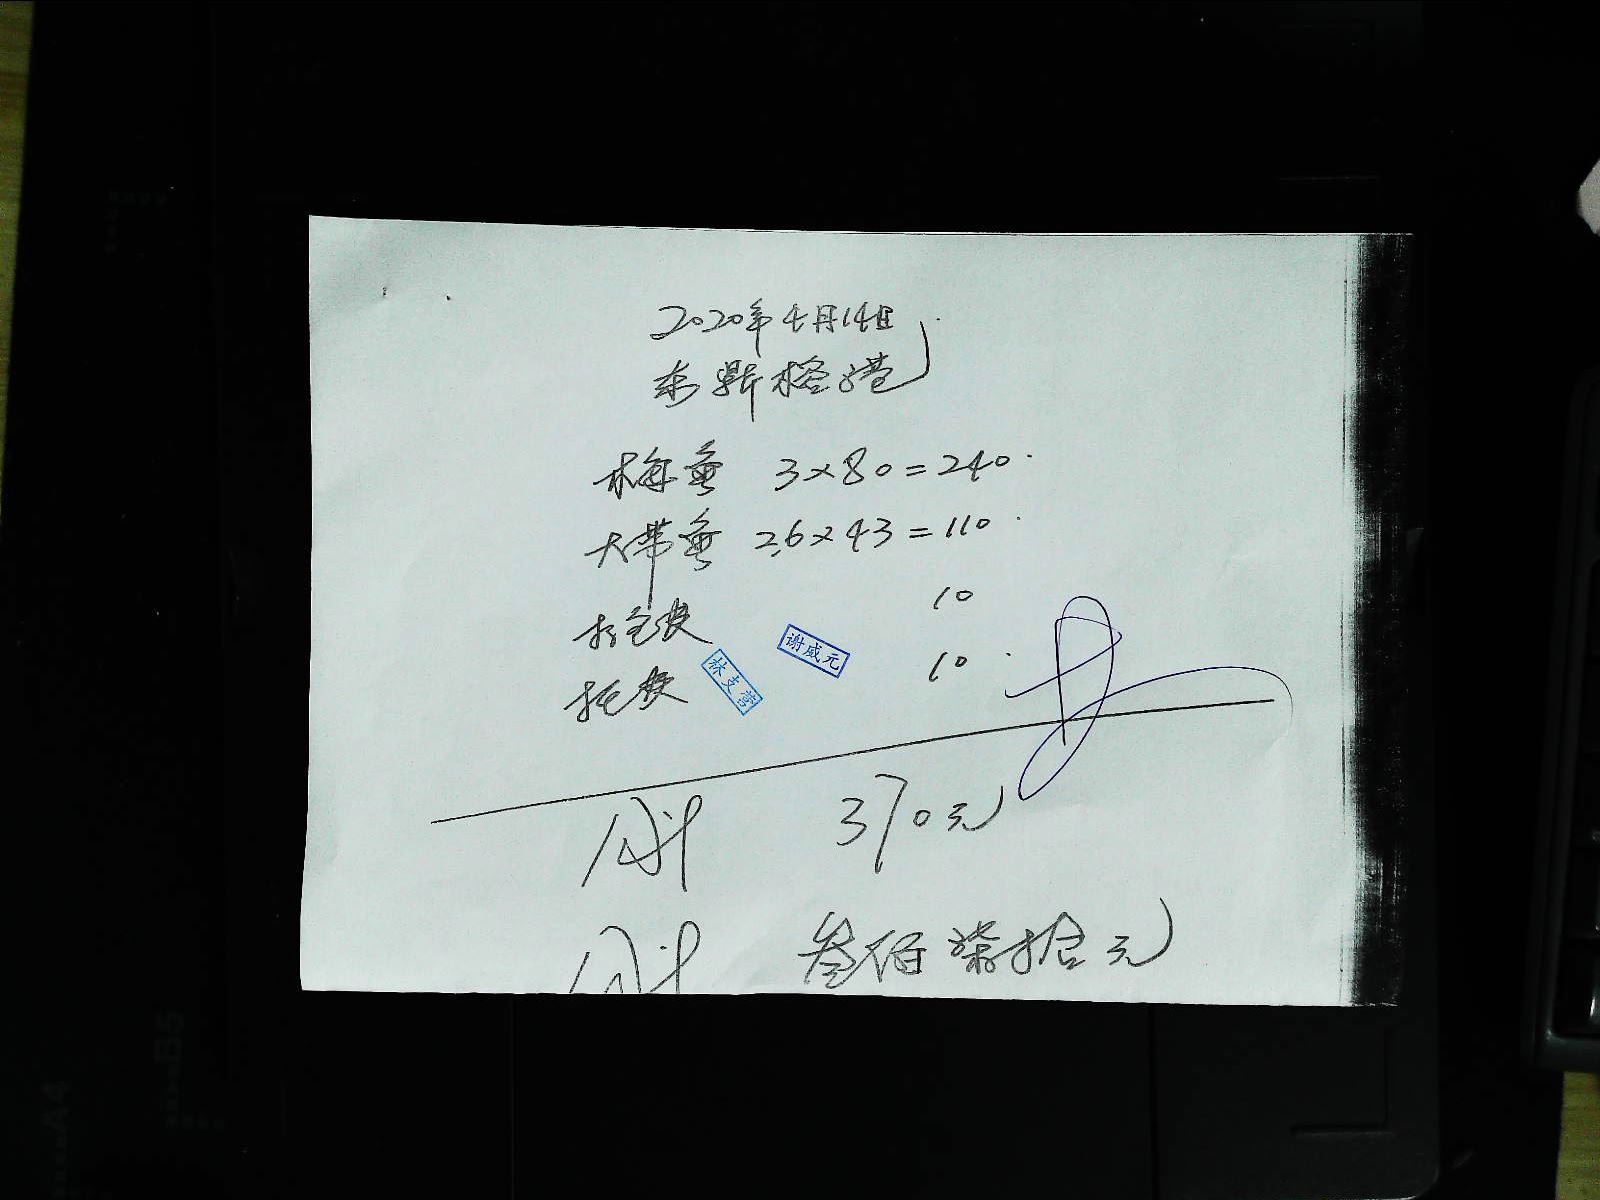 2020年4月14日
东鼎格港
梅鱼 3×80=240
大带鱼 2.6×43=110
打包费 10
托费 10
谢威元
林支营
合计 370元
合计 叁佰柒拾元
B5
A4